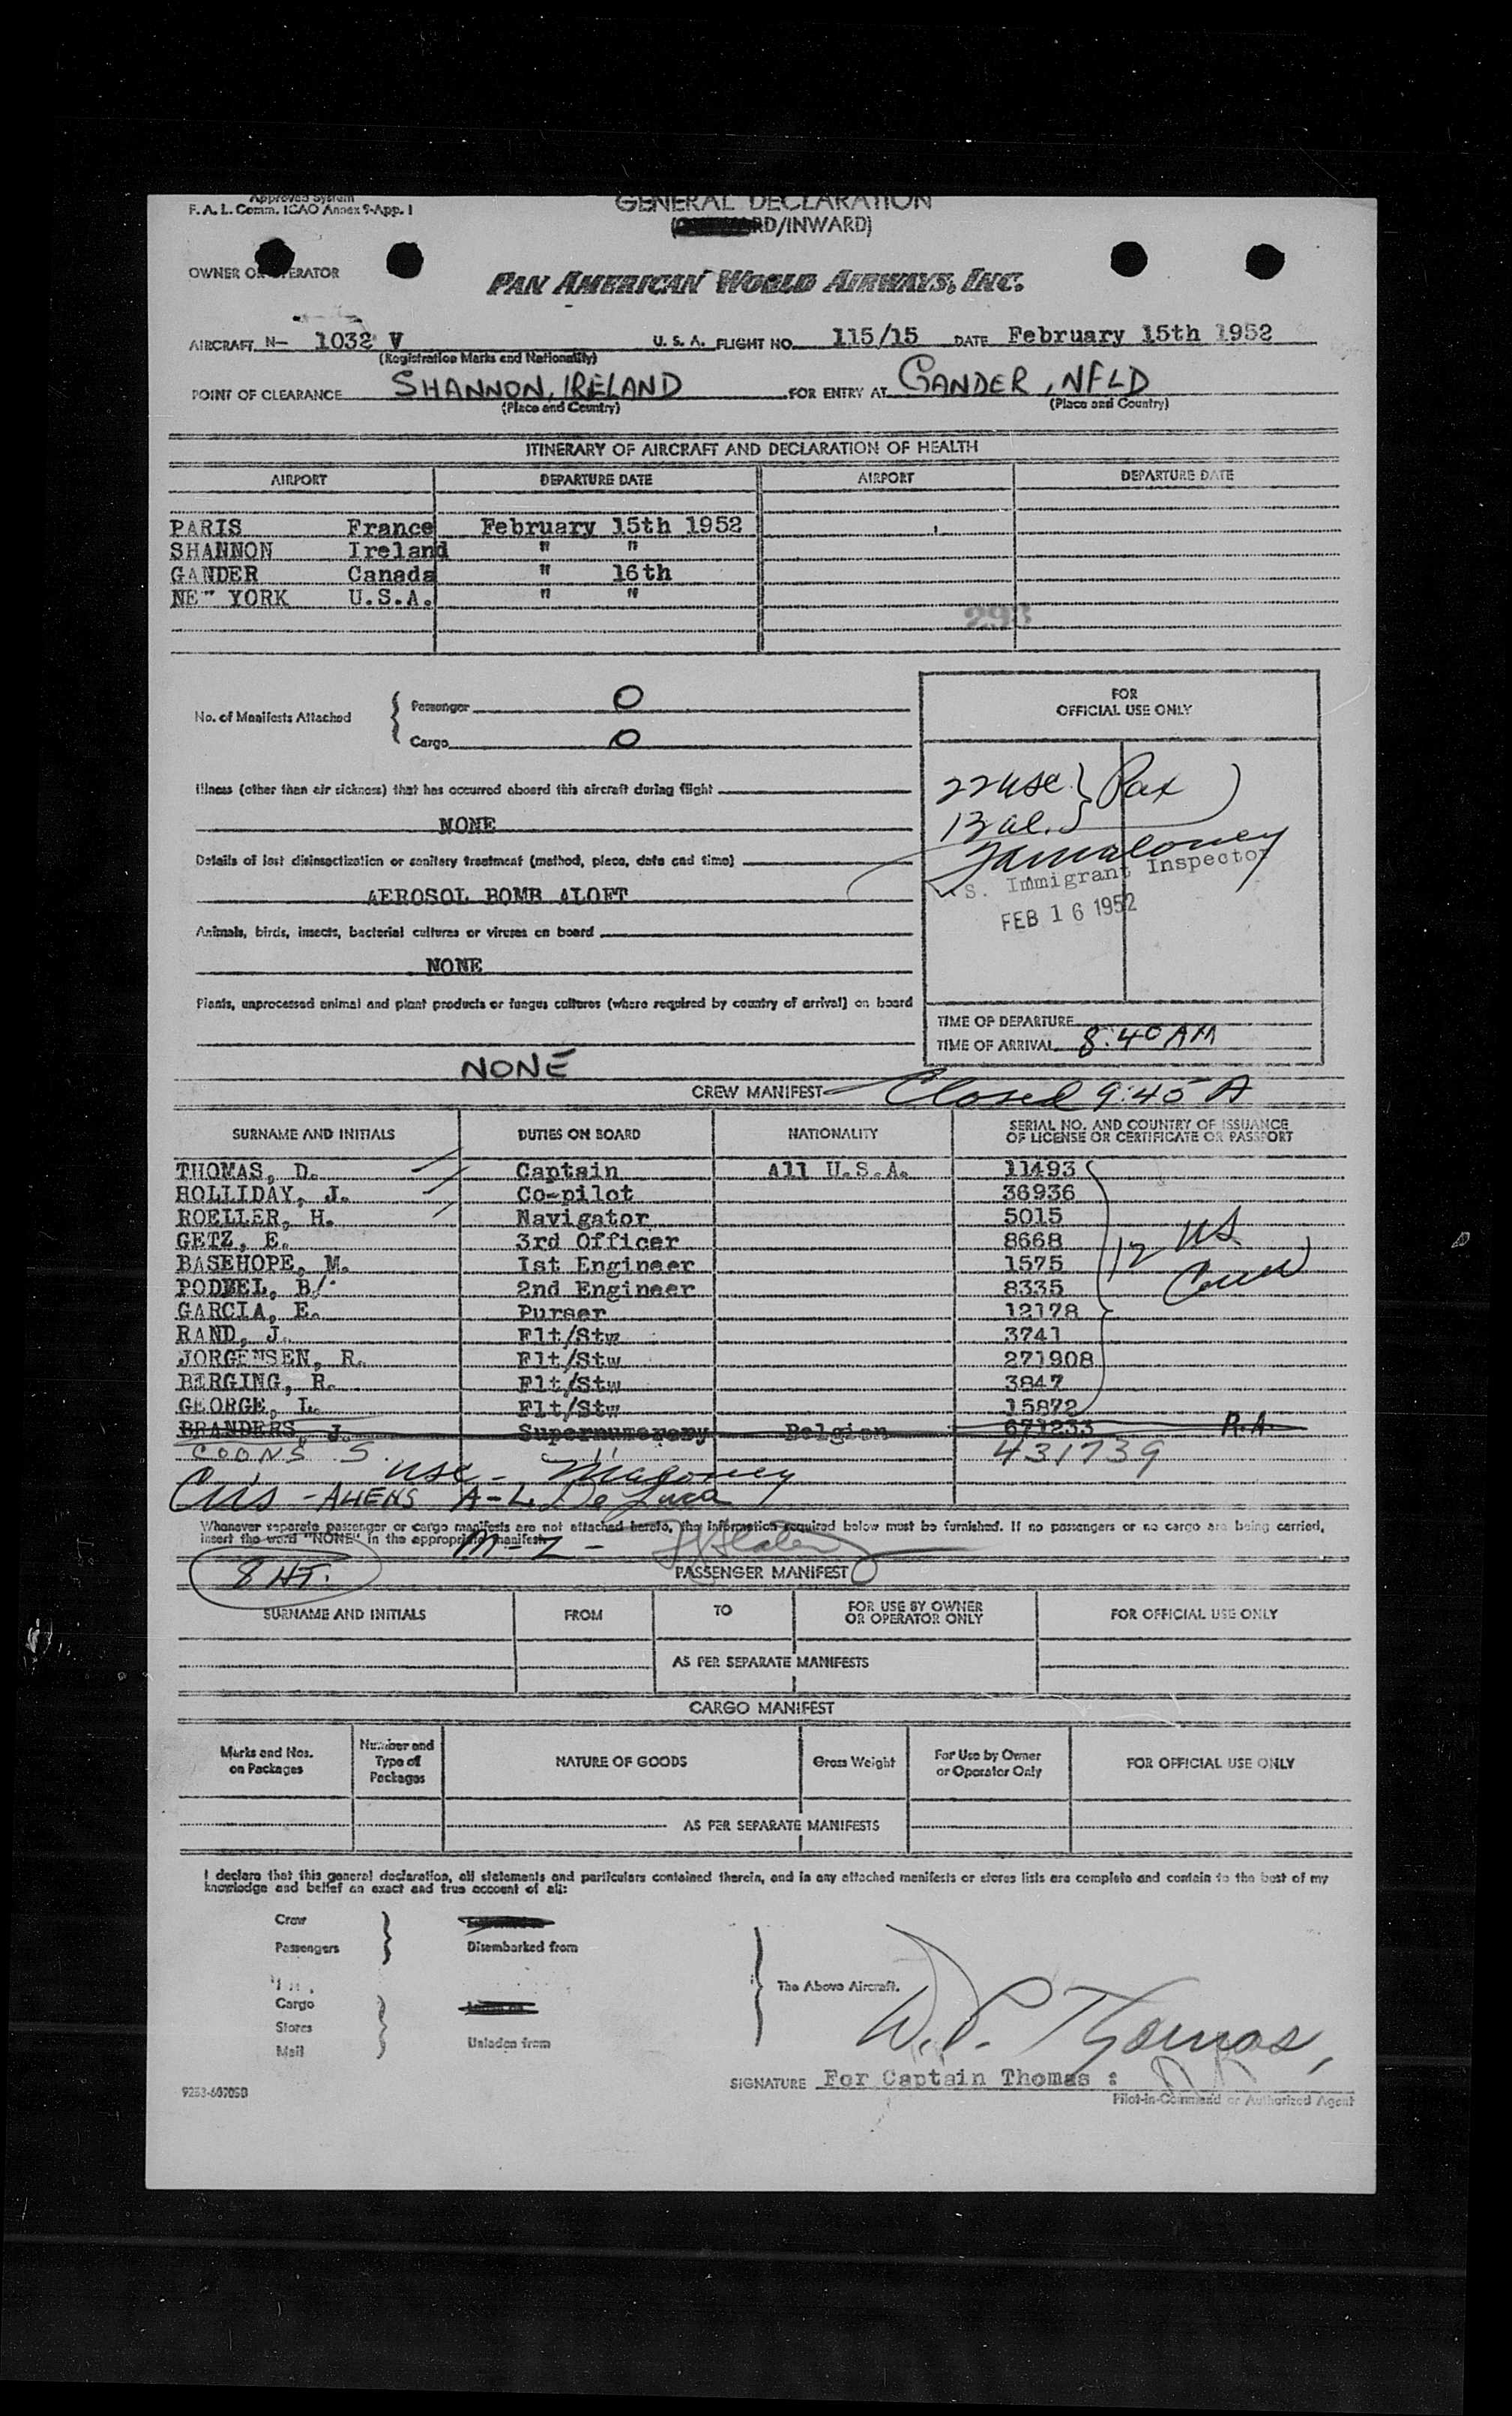 Approved System
F. A. L. Comm. ICAO Annex 9-App. I
GENERAL DECLARATION
RD/INWARD)
OWNER OR OPERATOR
PAN AMERICAN WORLD AIRWAYS, INC.
AIRCRAFT N- 1032 V U. S. A. FLIGHT NO. 115/15 DATE February 15th 1952
(Registration Marks and Nationality)
POINT OF CLEARANCE SHANNON, IRELAND FOR ENTRY AT GANDER, NFLD
(Place and Country) (Place and Country)
ITINERARY OF AIRCRAFT AND DECLARATION OF HEALTH
AIRPORT DEPARTURE DATE AIRPORT DEPARTURE DATE
PARIS France February 15th 1952
SHANNON Ireland " "
GANDER Canada " 16th
NE" YORK U.S.A. " "
293
No. of Manifests Attached { Passenger 0
Cargo 0
FOR
OFFICIAL USE ONLY
22 USC } Pax
13 al.
Illness (other than air sickness) that has occurred aboard this aircraft during flight
NONE
Details of last disinsectization or sanitary treatment (method, place, date and time)
AEROSOL BOMB ALOFT
Maloney
S. Immigrant Inspector
FEB 16 1952
Animals, birds, insects, bacterial cultures or viruses on board
NONE
Plants, unprocessed animal and plant products or fungus cultures (where required by country of arrival) on board
NONE
TIME OF DEPARTURE
TIME OF ARRIVAL 8:40 AM
CREW MANIFEST Closed 9:45 A
SURNAME AND INITIALS DUTIES ON BOARD NATIONALITY SERIAL NO. AND COUNTRY OF ISSUANCE
OF LICENSE OR CERTIFICATE OR PASSPORT
THOMAS, D. Captain All U.S.A. 11493
HOLLIDAY, J. Co-pilot 36936
ROELLER, H. Navigator 5015
GETZ, E. 3rd Officer 8668
BASEHOPE, M. 1st Engineer 1575
PODBEL, B/. 2nd Engineer 8335
GARCIA, E. Purser 12178
RAND, J. Flt/Stw 3741
JORGENSEN, R. Flt/Stw 271908
BERGING, R. Flt/Stw 3847
GEORGE, L. Flt/Stw 15872
12 US
Crew
BRANDERS, J. Supernumerary Belgian 671233 R.A.
COONS S. " 431739
USC - Maloney
- ALIENS A-L. De Luca
Whenever separate passenger or cargo manifests are not attached hereto, the information required below must be furnished. If no passengers or no cargo are being carried,
insert the word "NONE" in the appropriate manifest.
M-Z -
8 HT.
PASSENGER MANIFEST
SURNAME AND INITIALS FROM TO FOR USE BY OWNER
OR OPERATOR ONLY FOR OFFICIAL USE ONLY
AS PER SEPARATE MANIFESTS
CARGO MANIFEST
Marks and Nos.
on Packages Number and
Type of
Packages NATURE OF GOODS Gross Weight For Use by Owner
or Operator Only FOR OFFICIAL USE ONLY
AS PER SEPARATE MANIFESTS
I declare that this general declaration, all statements and particulars contained therein, and in any attached manifests or stores lists are complete and contain to the best of my
knowledge and belief an exact and true account of all:
Crew
Passengers Disembarked from
The Above Aircraft.
Cargo
Stores
Mail Unladen from
W. P. Thomas,
SIGNATURE For Captain Thomas :
Pilot-in-Command or Authorized Agent